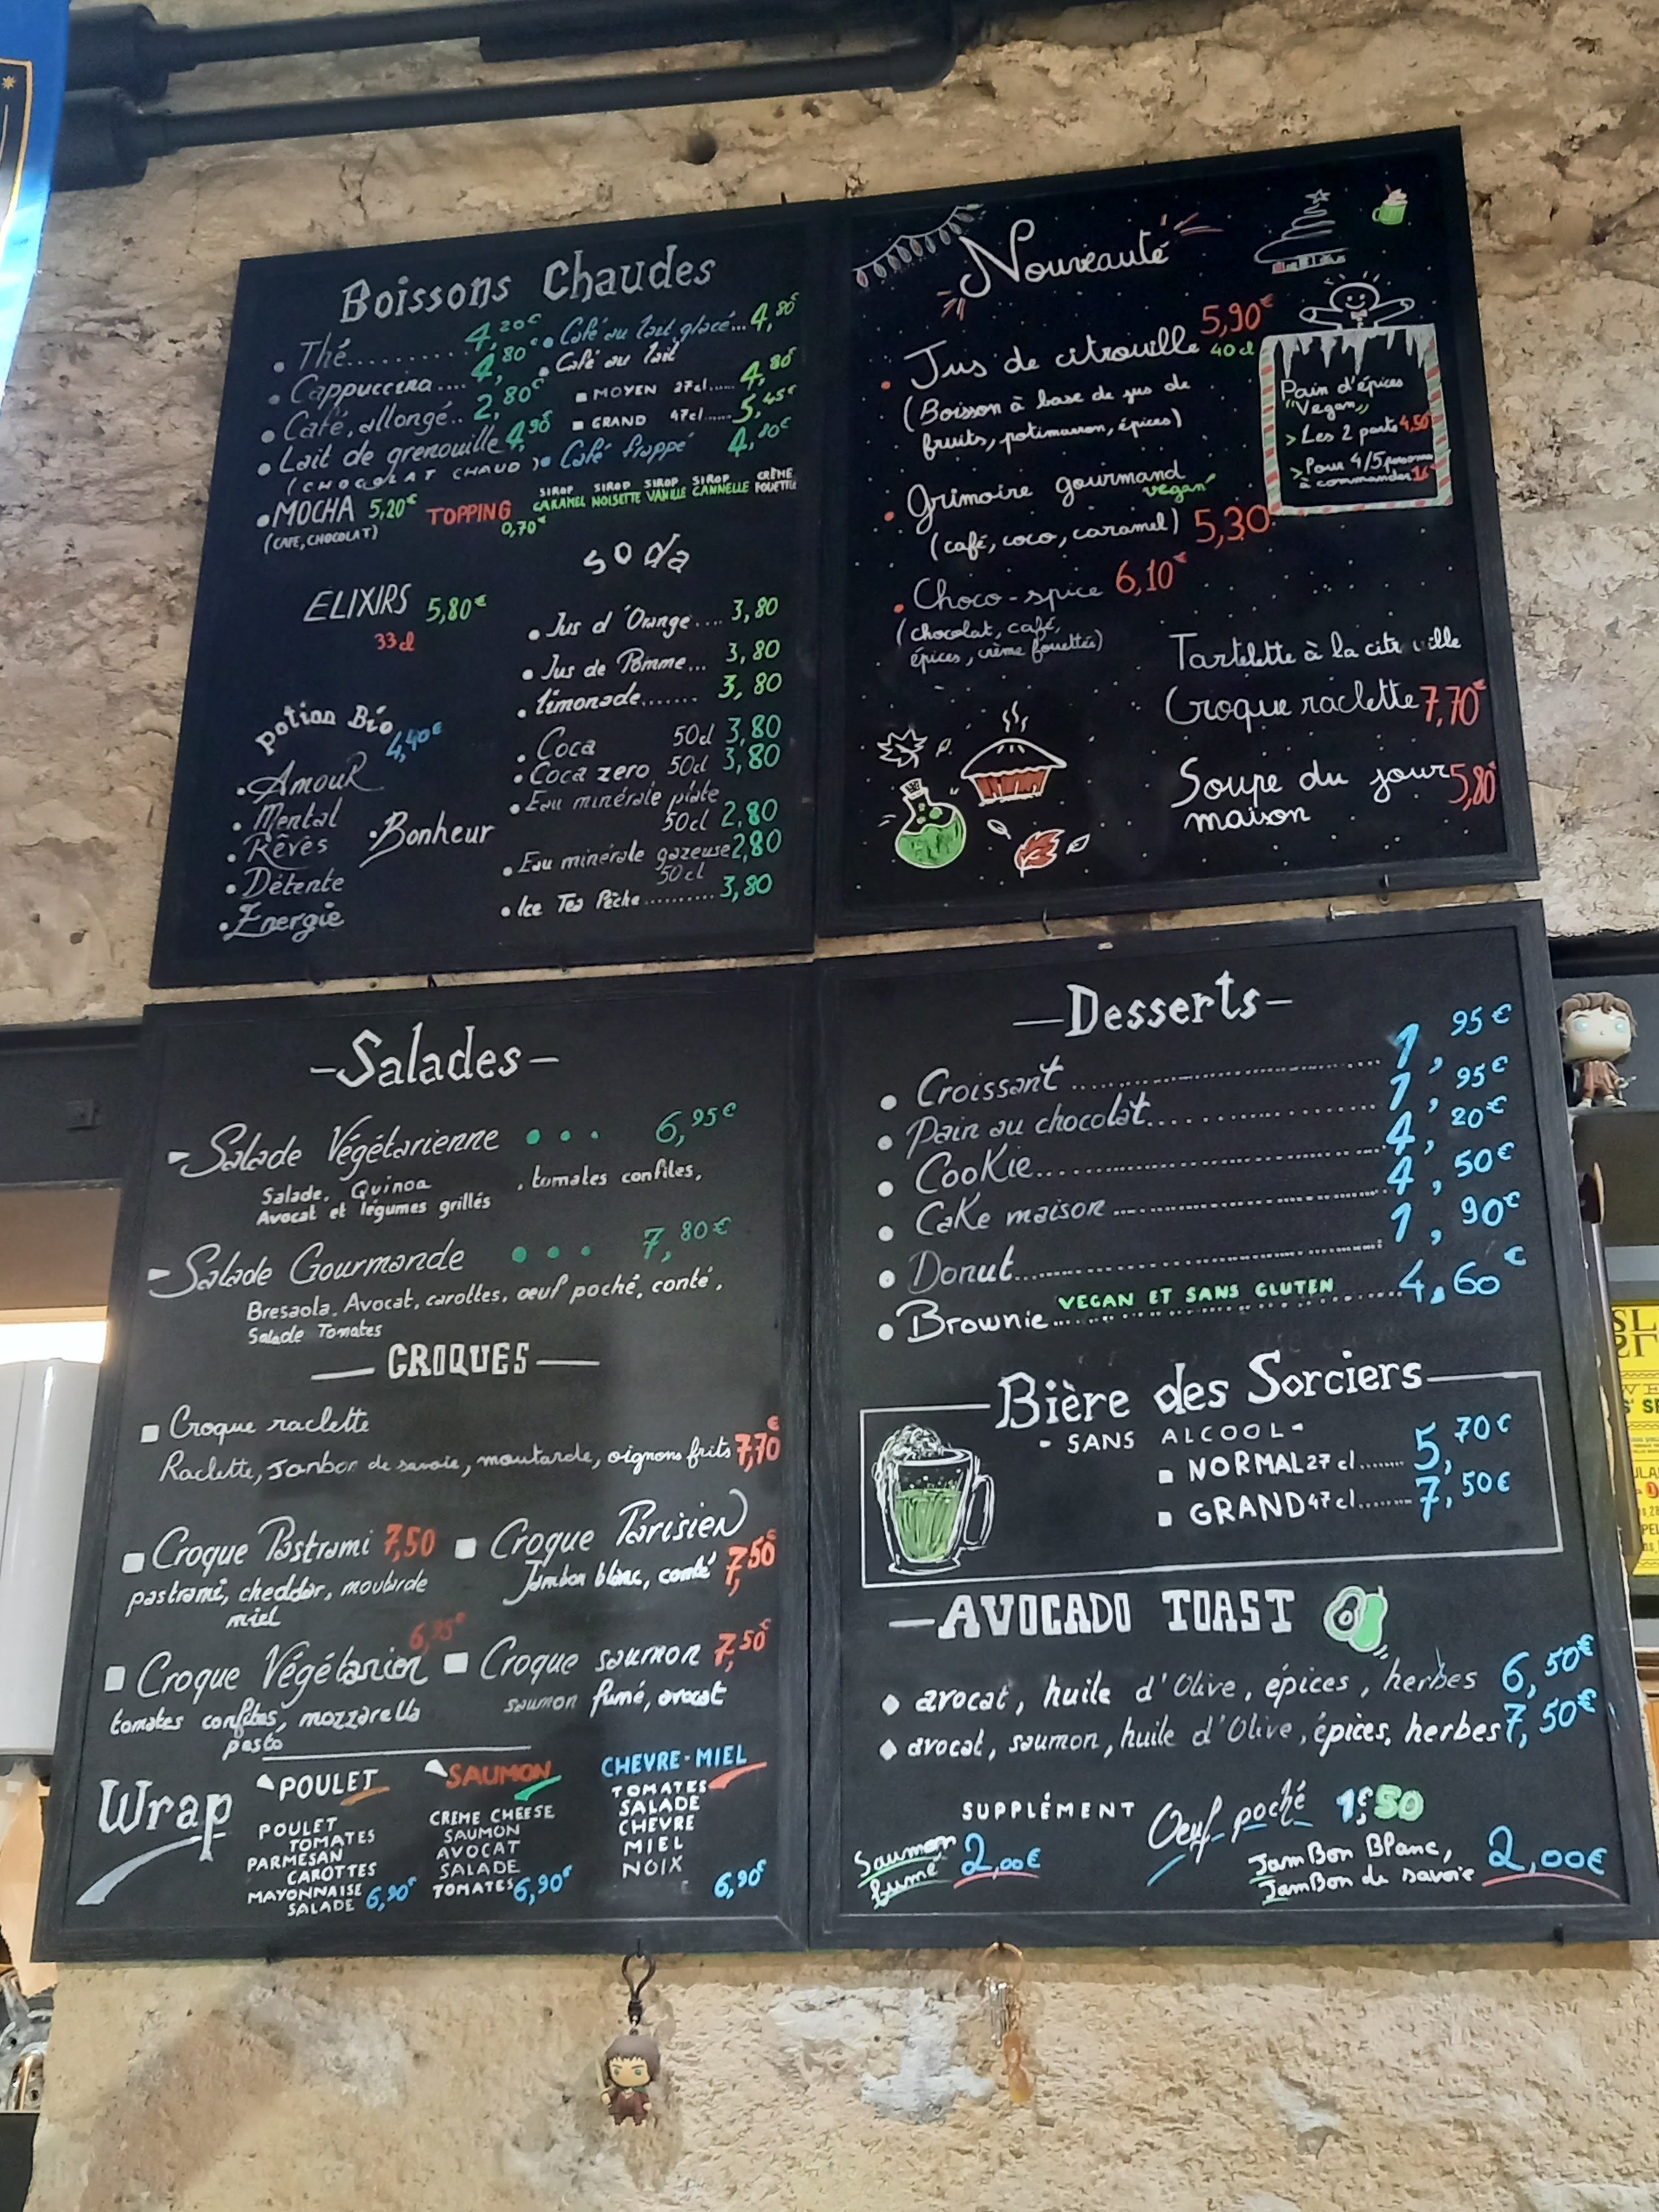 Boissons Chaudes
• Thé.......... 4,20€
• Cappuccino.... 4,80€
• Café, allongé.. 2,80€
• Lait de grenouille 4,90
(CHOCOLAT CHAUD)
• MOCHA 5,20€
(CAFE, CHOCOLAT)
• Café au lait glacé... 4,80€
• Café au lait
▪ MOYEN 27cl..... 4,80€
▪ GRAND 47cl..... 5,45€
• Café frappé 4,80€
TOPPING
0,70€
SIROP CARAMEL
SIROP NOISETTE
SIROP VANILLE
SIROP CANNELLE
CRÈME FOUETTÉE
ELIXIRS 5,80€
33cl
potion Bio
4,40€
• Amour
• Mental
• Rêves
• Détente
• Energie
• Bonheur
soda
• Jus d'Orange.... 3,80
• Jus de Pomme... 3,80
• limonade....... 3,80
• Coca 50cl 3,80
• Coca zero 50cl 3,80
• Eau minérale plate
50cl 2,80
• Eau minérale gazeuse 2,80
50cl
• Ice Tea Pêche.......... 3,80
Nouveauté
• Jus de citrouille 5,90€
40cl
(Boisson à base de jus de
fruits, potimarron, épices)
• Grimoire gourmand
vegan
(café, coco, caramel) 5,30
• Choco-spice 6,10€
(chocolat, café,
épices, crème fouettés)
Pain d'épices
"Vegan"
> Les 2 parts 4,50
> Pour 4/5 personnes
à commander 16€
Tartelette à la cit ville
Croque raclette 7,70€
Soupe du jour 5,80€
maison
-Salades-
Salade Végétarienne ... 6,95€
Salade, Quinoa , tomates confites,
Avocat et légumes grillés
Salade Gourmande ... 7,80€
Bresaola, Avocat, carottes, oeuf poché, conté,
Salade Tomates
CROQUES
▪ Croque raclette
Raclette, Janbon de savoie, moutarde, oignons frits 7,70€
▪ Croque Pastrami 7,50
pastrami, cheddar, moutarde
miel
▪ Croque Parisien
Jambon blanc, comté 7,50€
▪ Croque Végétarien 6,95€
tomates confites, mozzarella
pesto
▪ Croque saumon 7,50€
saumon fumé, avocat
Wrap
POULET
POULET
TOMATES
PARMESAN
CAROTTES
MAYONNAISE
SALADE 6,90€
SAUMON
CREME CHEESE
SAUMON
AVOCAT
SALADE
TOMATES 6,90€
CHEVRE-MIEL
TOMATES
SALADE
CHEVRE
MIEL
NOIX
6,90€
-Desserts-
• Croissant.......... 1,95€
• Pain au chocolat.......... 1,95€
• Cookie.......... 4,20€
• Cake maison.......... 4,50€
• Donut.......... 1,90€
• Brownie VEGAN ET SANS GLUTEN.......... 4,60€
Bière des Sorciers
- SANS ALCOOL -
▪ NORMAL 27cl....... 5,70€
▪ GRAND 47cl........ 7,50€
-AVOCADO TOAST
♦ avocat, huile d'Olive, épices, herbes 6,50€
♦ avocat, saumon, huile d'Olive, épices, herbes 7,50€
SUPPLÉMENT
Oeuf poché 1€50
Saumon fumé 2,00€
JamBon Blanc,
JamBon de savoie 2,00€